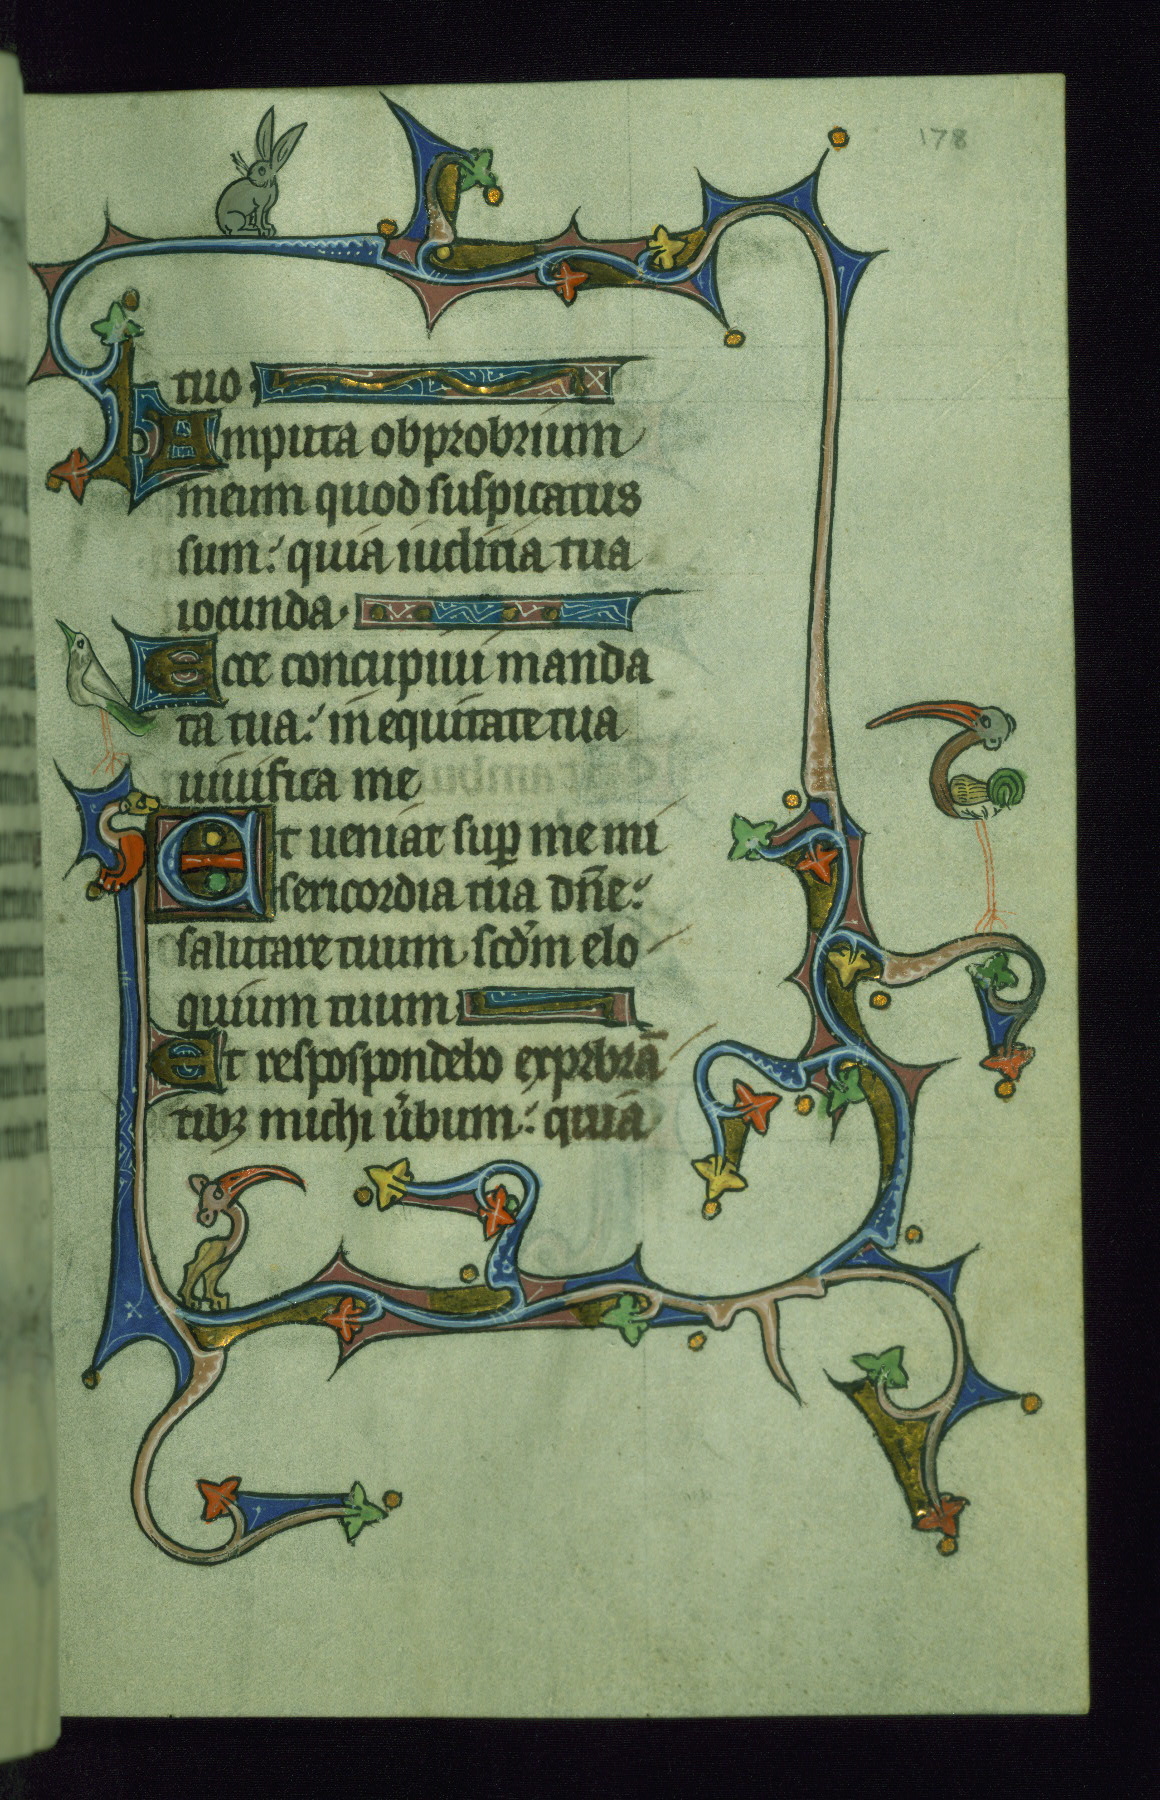 178
tuo.
Amputa obprobrium
meum quod suspicatus
sum: quia iudicia tua
iocunda.
Ecce concupiui manda
ta tua: in equitate tua
uiuifica me
Et ueniat sup me mi
sericordia tua dn̄e:
salutare tuum scd̄m elo
quium tuum
Et respospondebo exprbrā
tibꝫ michi u̾bum: quia